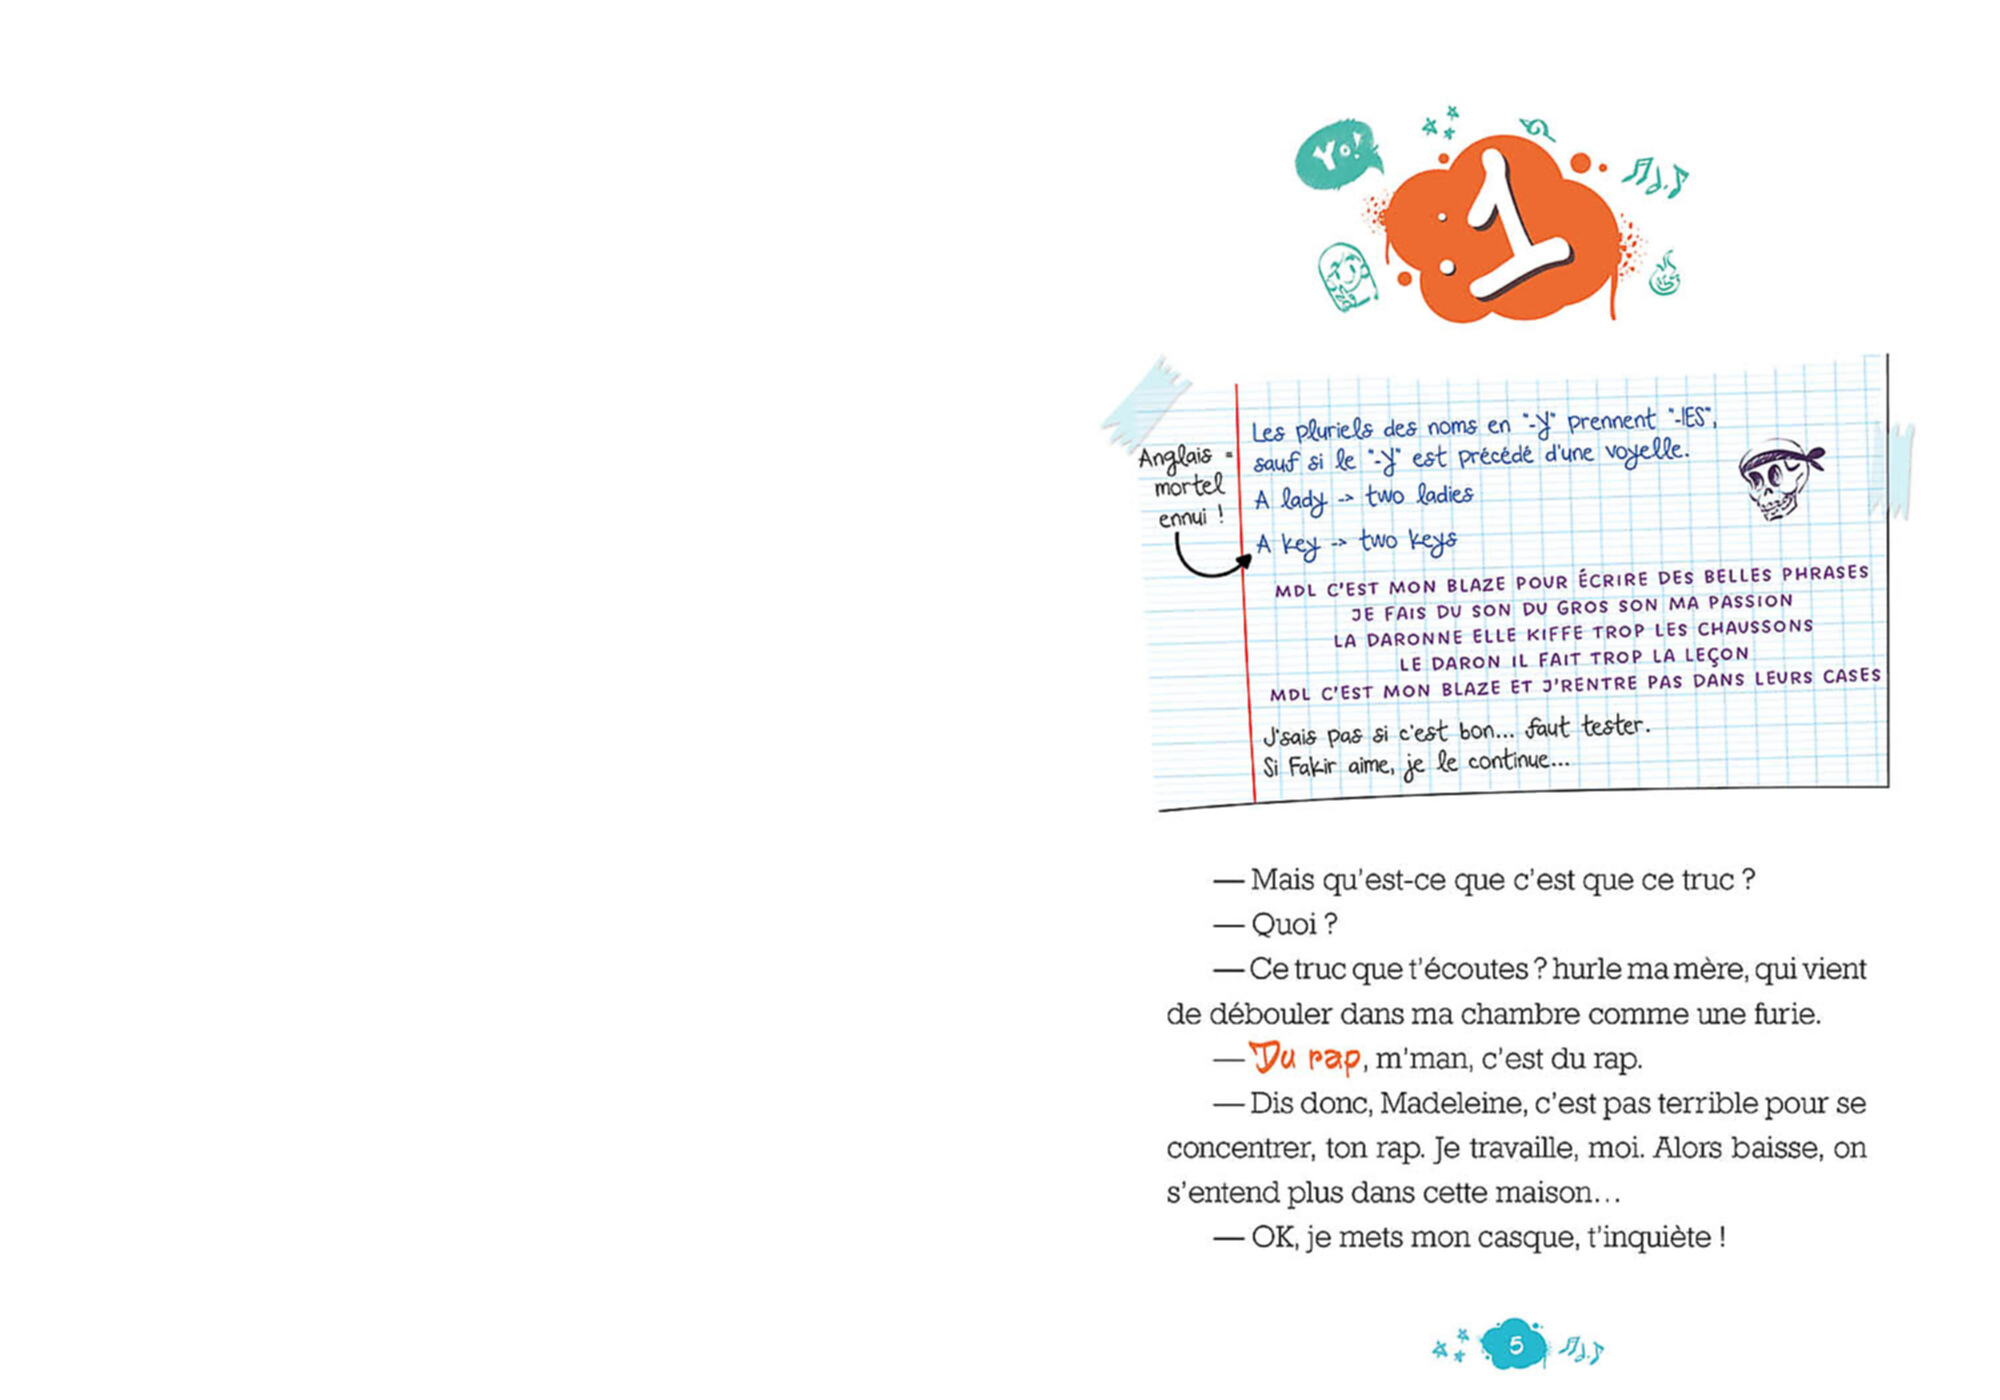 Yo!
1
Les pluriels des noms en "-y" prennent "-IES",
sauf si le "-y" est précédé d'une voyelle.
A lady -> two ladies
A key -> two keys
Anglais =
mortel
ennui !
MDL C'EST MON BLAZE POUR ÉCRIRE DES BELLES PHRASES
JE FAIS DU SON DU GROS SON MA PASSION
LA DARONNE ELLE KIFFE TROP LES CHAUSSONS
LE DARON IL FAIT TROP LA LEÇON
MDL C'EST MON BLAZE ET J'RENTRE PAS DANS LEURS CASES
J'sais pas si c'est bon... faut tester.
Si Fakir aime, je le continue...
— Mais qu'est-ce que c'est que ce truc ?
— Quoi ?
— Ce truc que t'écoutes ? hurle ma mère, qui vient
de débouler dans ma chambre comme une furie.
— Du rap, m'man, c'est du rap.
— Dis donc, Madeleine, c'est pas terrible pour se
concentrer, ton rap. Je travaille, moi. Alors baisse, on
s'entend plus dans cette maison…
— OK, je mets mon casque, t'inquiète !
5